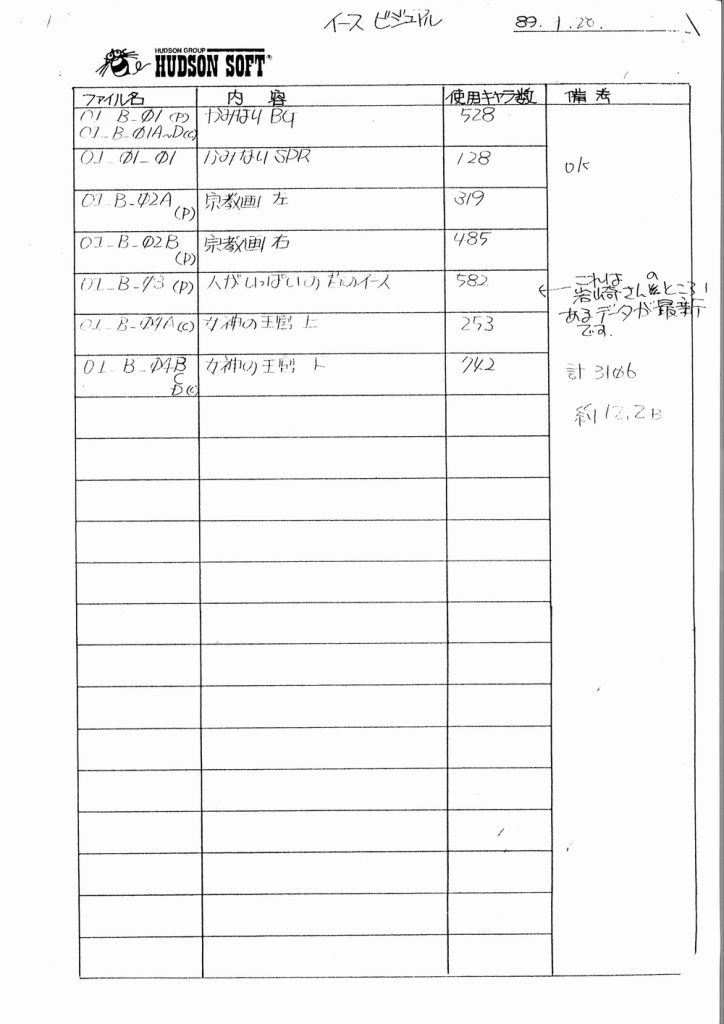 イース ビジュアル 89. 1.20.
HUDSON GROUP
HUDSON SOFT
ファイル名 内 容 使用キャラ数 備 考
01_B_01 (P) かみなり BG 528
01_B_01A~D(C)
01_01_01 かみなり SPR 128 ok
01_B_02A (P) 宗教画 左 319
01_B_02B (P) 宗教画 右 485
01_B_03 (P) 人がいっぱいの 昔のイース 582
←これは
岩崎さんのところに
あるデータが最新
です.
01_B_04A(C) 女神の王宮 上 253
01_B_04B 女神の王宮 下 742
C
D(C)
計 3106
約12.2B